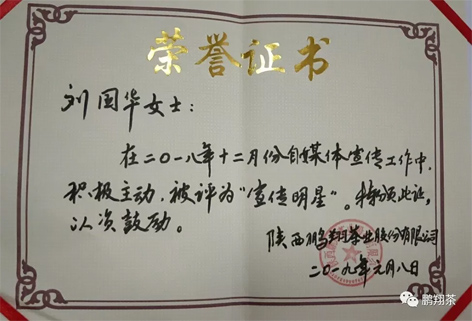 荣誉证书
刘国华女士：
在二〇一八年十二月份自媒体宣传工作中，
积极主动，被评为“宣传明星”。特颁此证，
以资鼓励。
陕西鹏翔茶业股份有限公司
二〇一九年元月八日
鹏翔茶